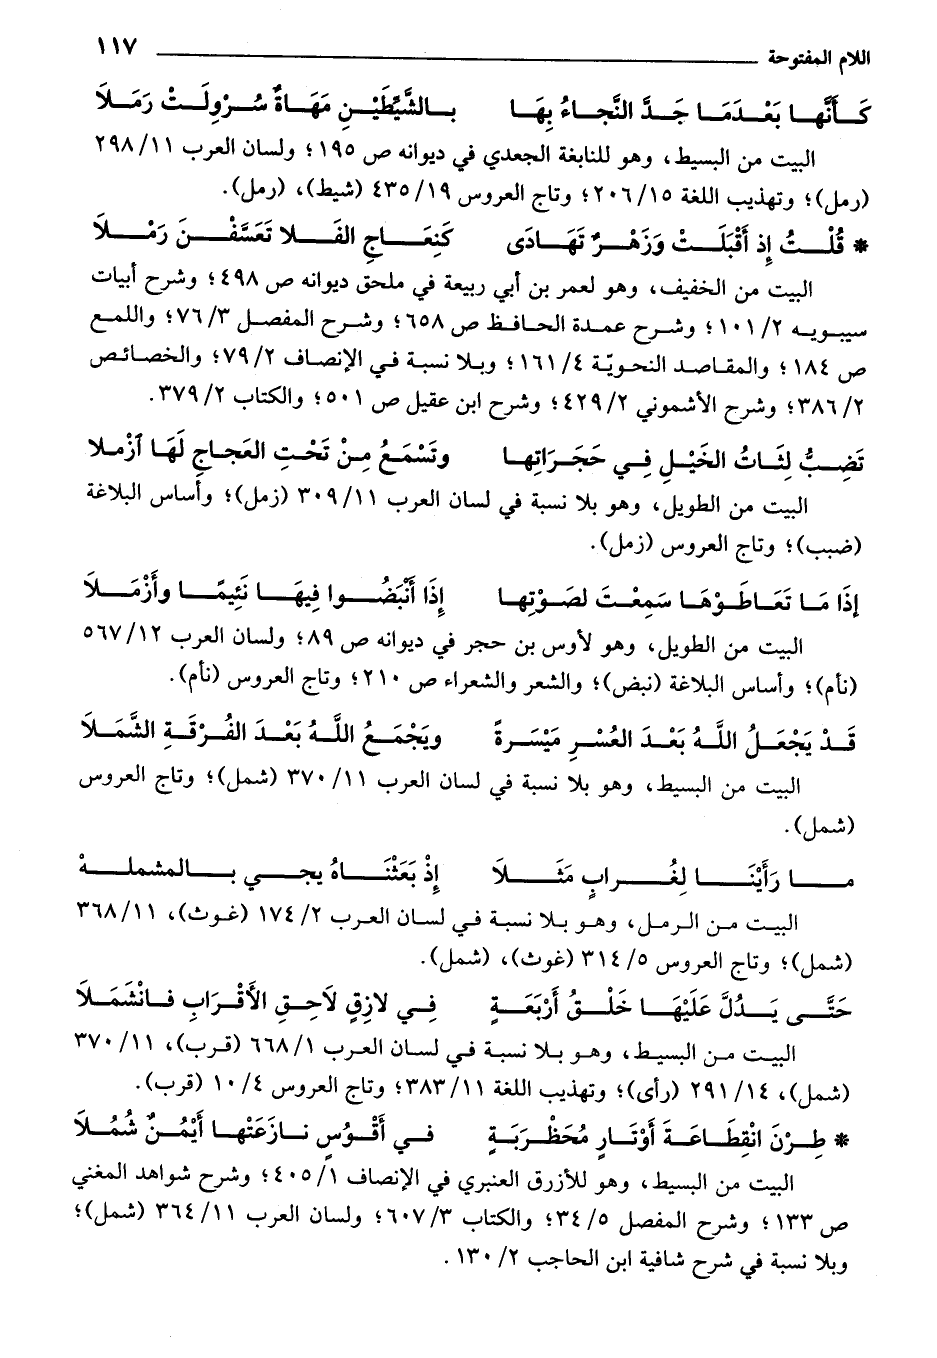 اللام المفتوحة ١١٧
كَــأَنَّهــا بَعْــدَمَــا جَــدَّ النَّجــاءُ بِهَــا بــالشَّيِّطَيْــنِ مَهَــاةٌ سُــرْوِلَــتْ رَمَــلاَ
البيت من البسيط، وهو للنابغة الجعدي في ديوانه ص ١٩٥؛ ولسان العرب ١١/ ٢٩٨
(رمل)؛ وتهذيب اللغة ١٥/ ٢٠٦؛ وتاج العروس ١٩/ ٤٣٥ (شيط)، (رمل).
* قُلْــتُ إِذ أَقْبَلَــتْ وَزَهْــرٌ تَهَــادَى كَنِعَــاجِ الفَــلا تَعَسَّفْــنَ رَمْــلاَ
البيت من الخفيف، وهو لعمر بن أبي ربيعة في ملحق ديوانه ص ٤٩٨؛ وشرح أبيات
سيبويه ٢/ ١٠١؛ وشرح عمدة الحافظ ص ٦٥٨؛ وشرح المفصل ٣/ ٧٦؛ واللمع
ص ١٨٤؛ والمقاصد النحويّة ٤/ ١٦١؛ وبلا نسبة في الإنصاف ٢/ ٧٩؛ والخصائص
٢/ ٣٨٦؛ وشرح الأشموني ٢/ ٤٢٩؛ وشرح ابن عقيل ص ٥٠١؛ والكتاب ٢/ ٣٧٩.
تَضِــبُّ لِثَــاتُ الخَيْــلِ فِــي حَجَــرَاتِهــا وتَسْمَــعُ مِــنْ تَحْــتِ العَجــاجِ لَهَــا ٱزْمـلا
البيت من الطويل، وهو بلا نسبة في لسان العرب ١١/ ٣٠٩ (زمل)؛ وأساس البلاغة
(ضبب)؛ وتاج العروس (زمل).
إذَا مَــا تَعَــاطَــوْهَــا سَمِعْــتَ لصَــوْتِهــا إِذَا أَنْبَضُــوا فِيهَــا نَئِيمًــا وأَزْمَــلاَ
البيت من الطويل، وهو لأوس بن حجر في ديوانه ص ٨٩؛ ولسان العرب ١٢/ ٥٦٧
(نأم)؛ وأساس البلاغة (نبض)؛ والشعر والشعراء ص ٢١٠؛ وتاج العروس (نأم).
قَــدْ يَجْعَــلُ اللَّــهُ بَعْــدَ العُسْــرِ مَيْسَــرةً ويَجْمَــعُ اللَّــهُ بَعْــدَ الفُــرْقَــةِ الشَّمَــلاَ
البيت من البسيط، وهو بلا نسبة في لسان العرب ١١/ ٣٧٠ (شمل)؛ وتاج العروس
(شمل).
مــا رَأَيْنَــا لِغُــرابٍ مَثَــلاَ إِذْ بَعَثْنَــاهُ يجــي بــالمشملــهْ
البيت من الرمل، وهو بلا نسبة في لسان العرب ٢/ ١٧٤ (غوث)، ١١/ ٣٦٨
(شمل)؛ وتاج العروس ٥/ ٣١٤ (غوث)، (شمل).
حَتَّــى يَــدُلَّ عَلَيْهَــا خَلْــقُ أَرْبَعَــةٍ فِــي لازِقٍ لاَحِــقِ الأَقْــرَابِ فــانْشَمَــلاَ
البيت من البسيط، وهو بلا نسبة في لسان العرب ١/ ٦٦٨ (قرب)، ١١/ ٣٧٠
(شمل)، ١٤/ ٢٩١ (رأى)؛ وتهذيب اللغة ١١/ ٣٨٣؛ وتاج العروس ٤/ ١٠ (قرب).
* طِــرْنَ انْقِطَــاعَــةَ أَوْتَــارٍ مُحَظْــرَبَــةٍ فــي أَقْــوُسٍ نــازَعَتْهــا أَيْمُــنٌ شُمُــلاَ
البيت من البسيط، وهو للأزرق العنبري في الإنصاف ١/ ٤٠٥؛ وشرح شواهد المغني
ص ١٣٣؛ وشرح المفصل ٥/ ٣٤؛ والكتاب ٣/ ٦٠٧؛ ولسان العرب ١١/ ٣٦٤ (شمل)؛
وبلا نسبة في شرح شافية ابن الحاجب ٢/ ١٣٠.